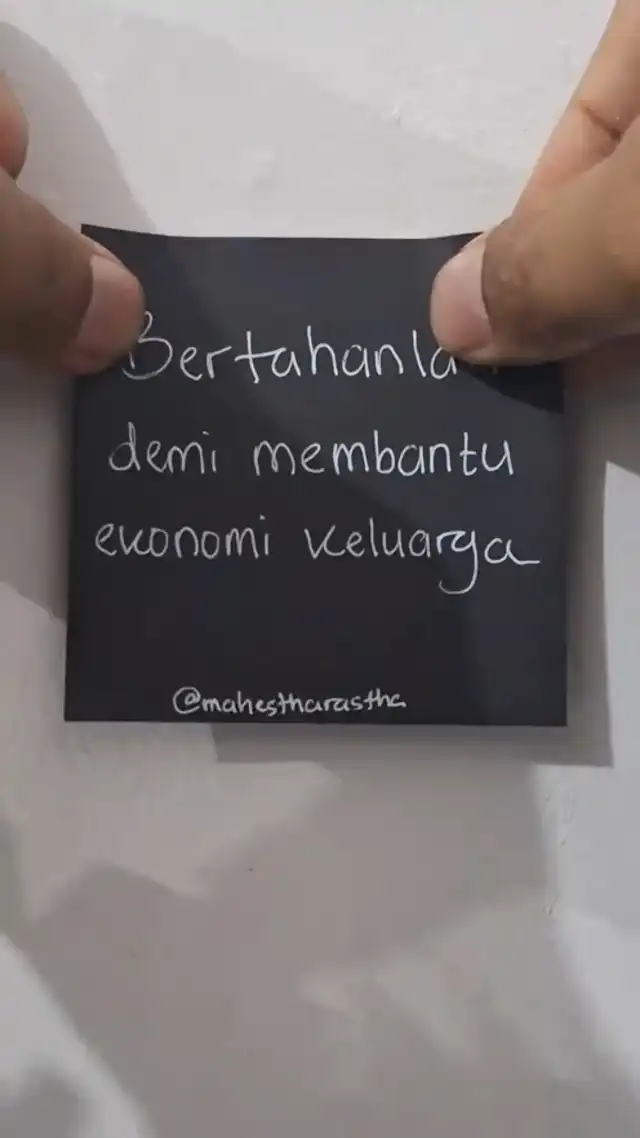 Bertahanla
demi membantu
ekonomi keluarga
@mahestharastha